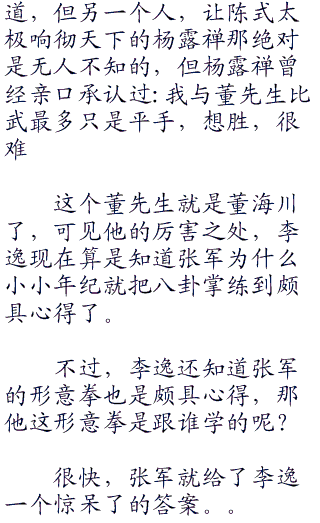 道，但另一个人，让陈式太
极响彻天下的杨露禅那绝对
是无人不知的，但杨露禅曾
经亲口承认过:我与董先生比
武最多只是平手，想胜，很
难
这个董先生就是董海川
了，可见他的厉害之处，李
逸现在算是知道张军为什么
小小年纪就把八卦掌练到颇
具心得了。
不过，李逸还知道张军
的形意拳也是颇具心得，那
他这形意拳是跟谁学的呢？
很快，张军就给了李逸
一个惊呆了的答案。。